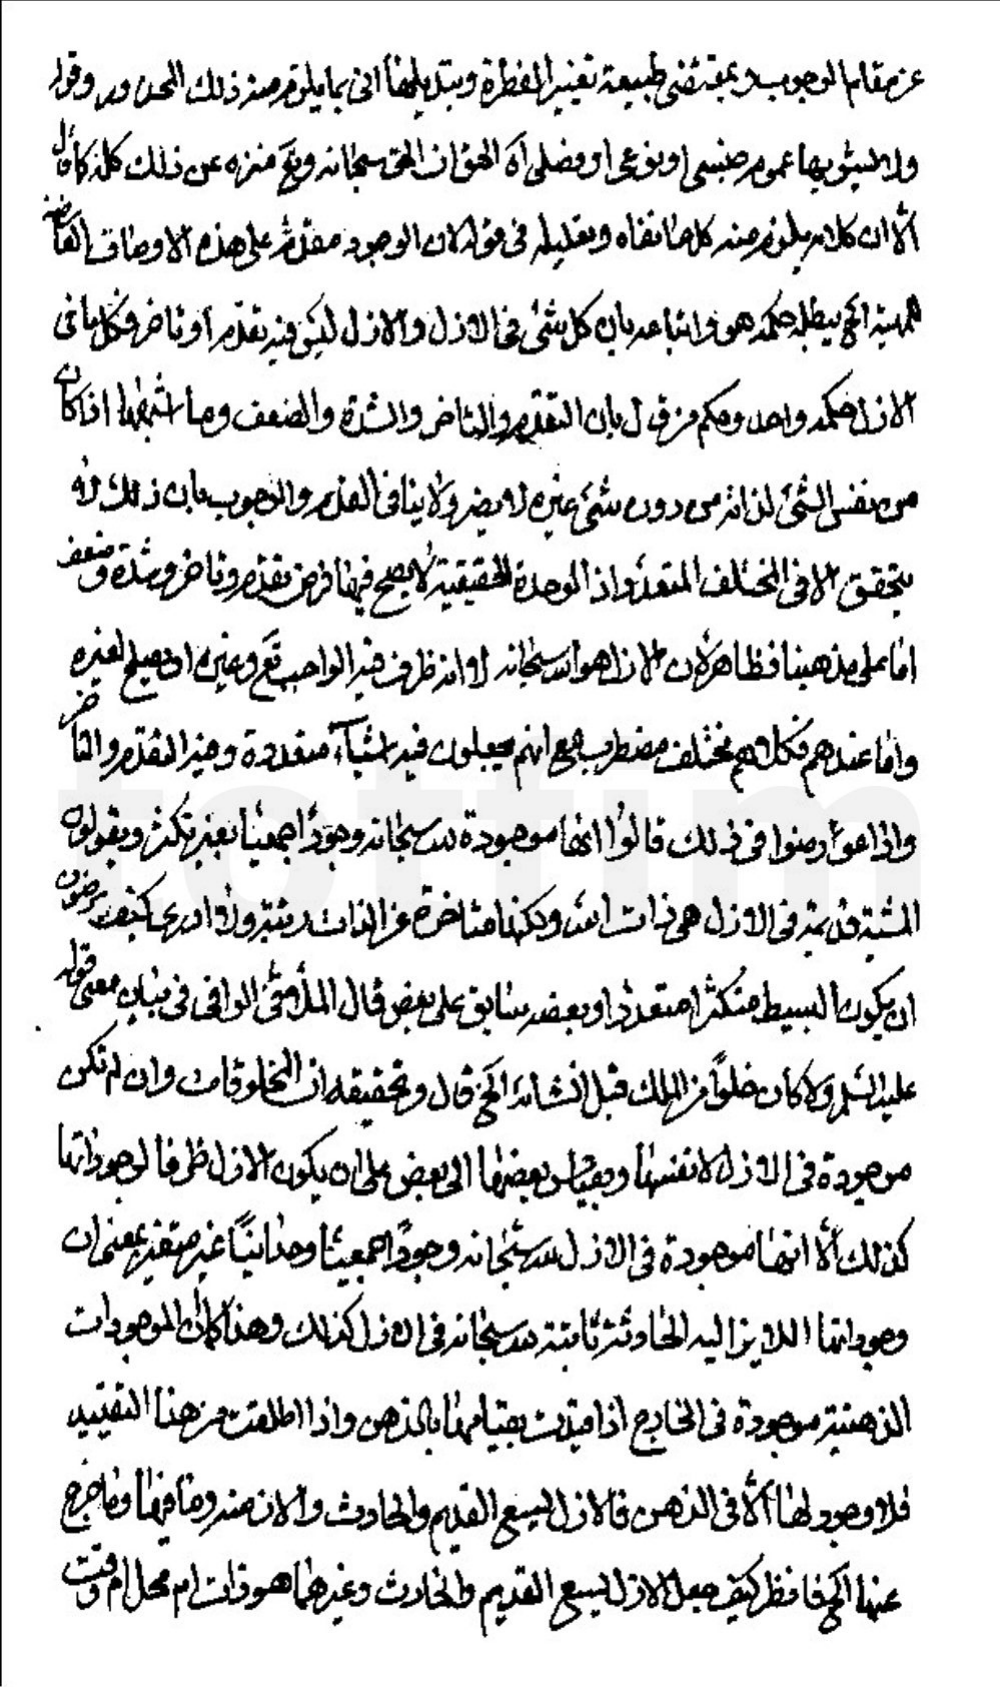 عن مقام الوجوب و بمقتضى طبيعة تغيير الفطرة وتبديلها اتى بما يلزم منه ذلك المحذور وقوله
ولا يشوبها عموم جنسي او نوعي او فصلي آه الحق ان الحق سبحانه وتع منزه عن ذلك كله كما قال
الّا ان كلامه يلزم منه كلما نفاه وتعليله في قوله لان الوجود مقدم على هذه الاوصاف العارضة
للمهية الخ يبطله حكمه هو واتباعه بان كل شئ في الازل والازل ليس فيه تقدم او تاخر فكل ما في
الازل حكمه واحد وحكم من قال بان التقدم والتاخر والشدة والضعف وما اشبهها اذا كان
من نفس الشئ لذاته من دون شئ غيره لا يضر ولا ينافى القدم والوجوب بان ذلك لا
يتحقق الا في المختلف المتعدد واذ الوحدة الحقيقية لا يصح فيها فرض تقدم وتاخر وشدة وضعف
اما على مذهبنا فظاهر لان الازل هو الله سبحانه لا انه ظرف فيه الواجب تع وغيره او يصلح لغيره
واما عندهم فكلامهم مختلف مضطرب مع انهم يجعلون فيه اشياء متعددة وفيه التقدم والتاخر
واذا عورضوا في ذلك قالوا انها موجودة لله سبحانه وجوداً جمعياً بغير تكثر ويقولون
المشية قديمة في الازل هي ذات الله ولكنها متاخرة عن الذات رتبة ولا ادري كيف يرضون
ان يكون البسيط متكثرا متعددا وبعضه سابق على بعض قال الملا في الوافى في بيان معنى قوله
عليه السلم ولا كان خلواً من الملك قبل انشائه الخ قال وتحقيقه ان المخلوقات وان لم تكن
موجودة في الازل لانفسها وبقياس بعضها الى بعض على ان يكون الازل ظرفا لوجوداتها
كذلك الّا انها موجودة في الازل لله سبحانه وجوداً جمعياً وحدانياً غير متغير بمعنى ان
وجوداتها اللايزالية الحادثة ثابتة لله سبحانه في الازل كذلك وهذا كما ان الموجودات
الذهنية موجودة في الخارج اذا قيدت بقيامها بالذهن واذا اطلقت من هذا التقييد
فلا وجود لها الّا في الذهن فالازل يسع القديم والحادث والازمنة وما فيها وما خرج
عنها الخ فانظر كيف جعل الازل يسع القديم والحادث وغيرهما هو ذات ام محل ام وقت